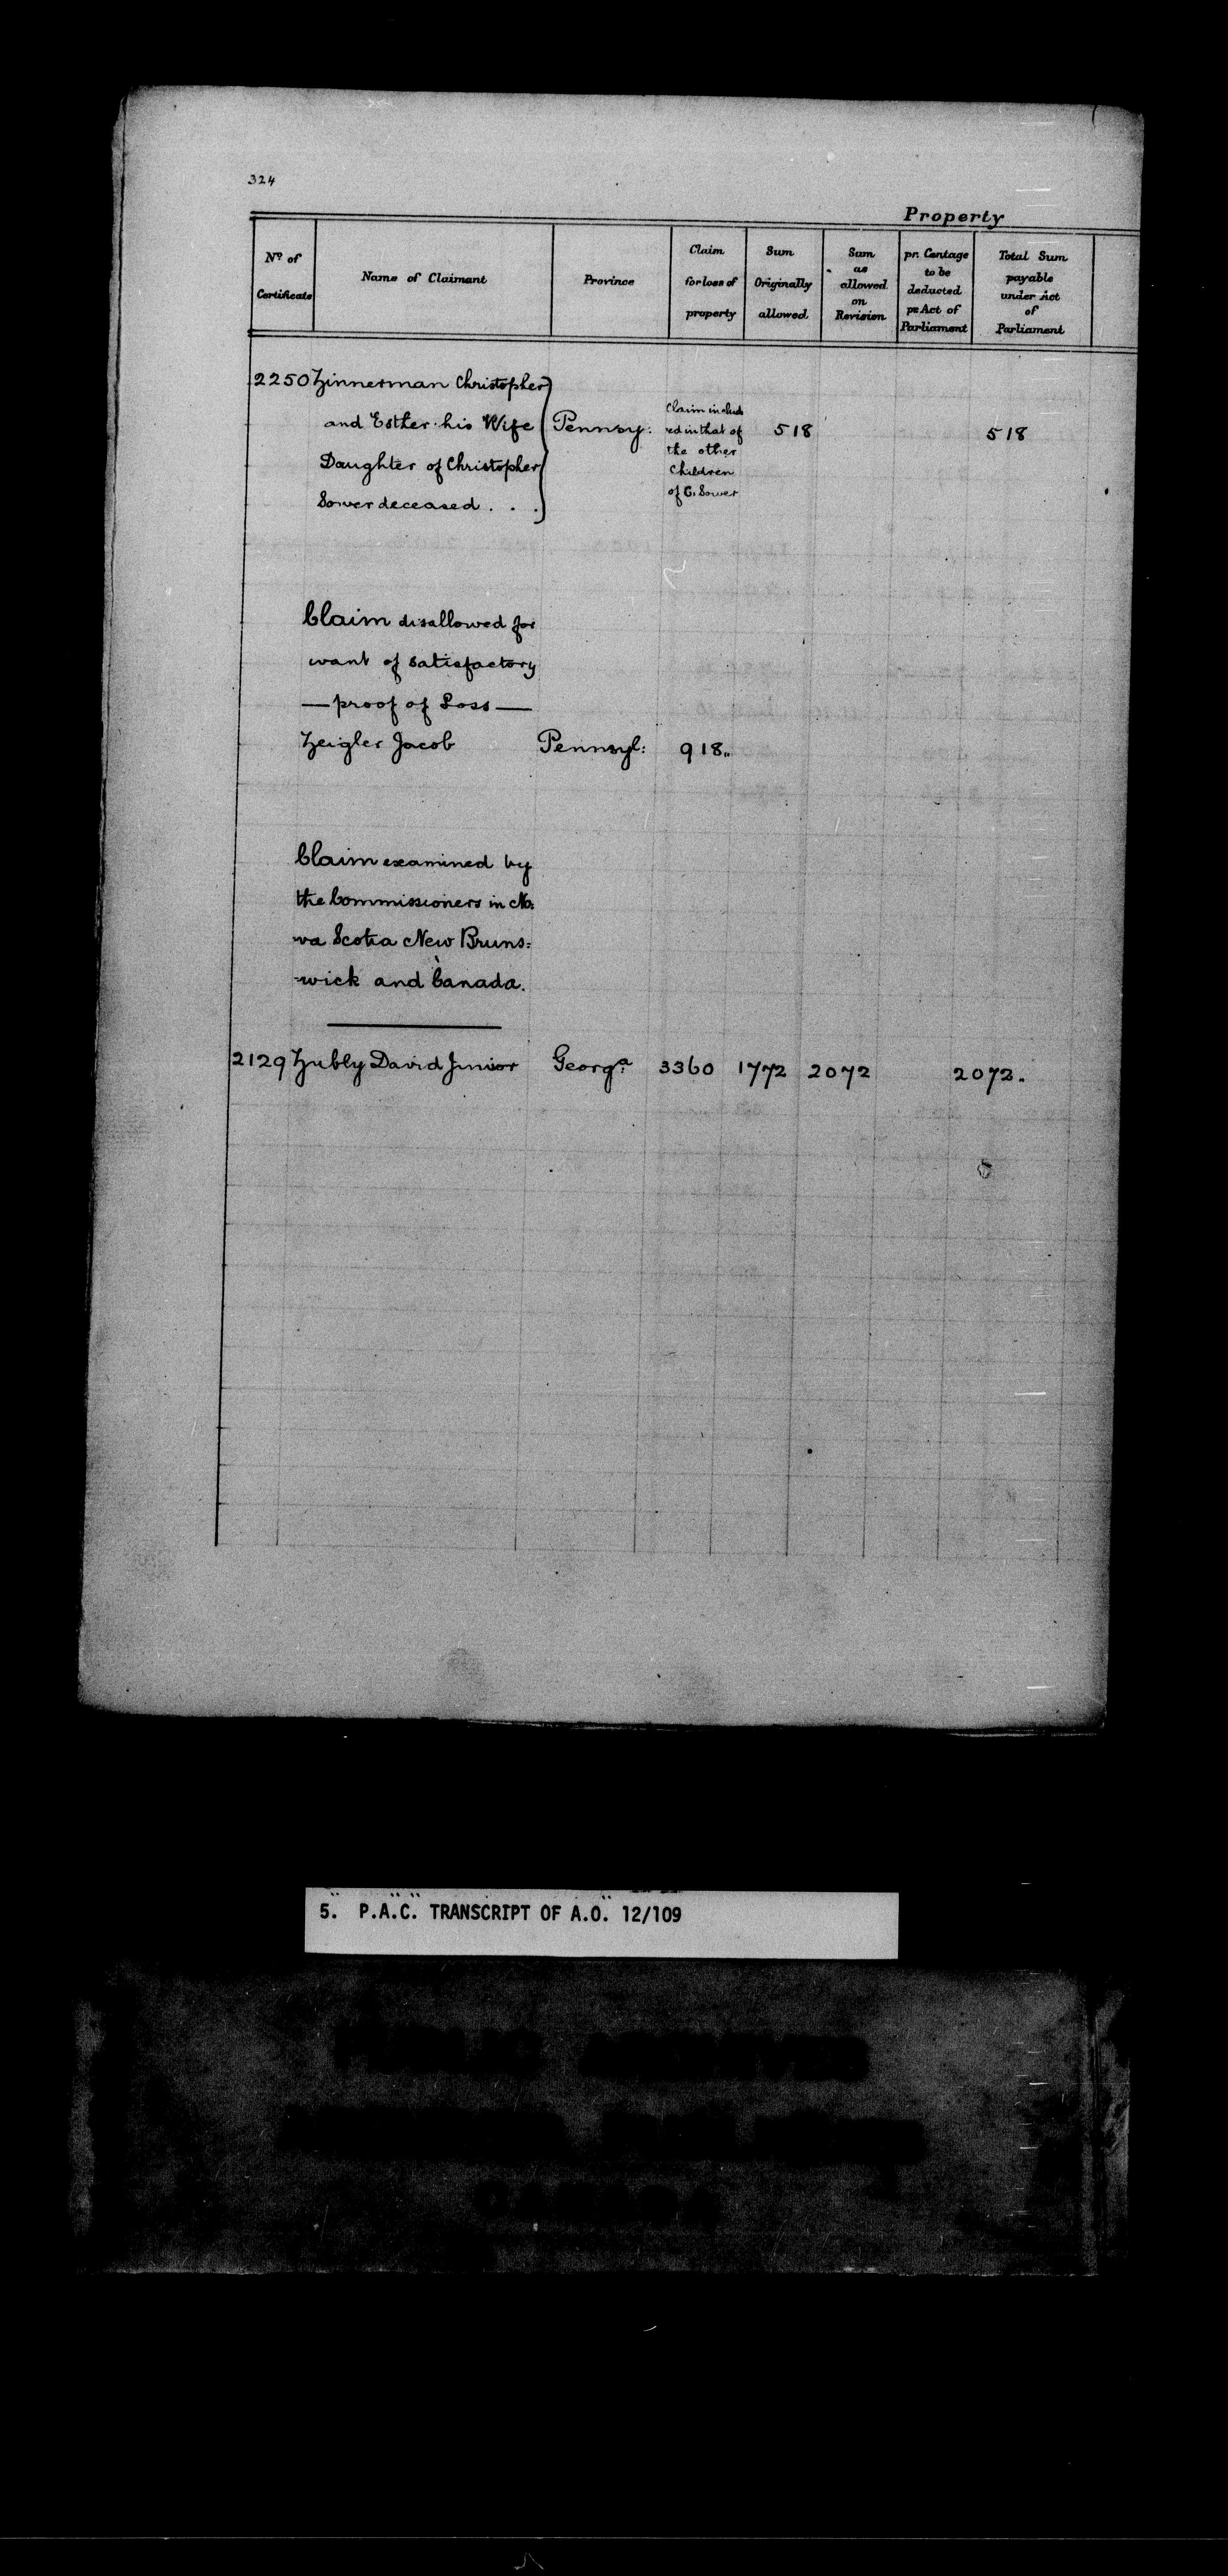 324
Property
No. of Certificate
Name of Claimant
Province
Claim for loss of property
Sum Originally allowed
Sum as allowed on Revision
pr. Centage to be deducted pr Act of Parliament
Total Sum payable under Act of Parliament
2250 Zinnerman Christopher
and Esther his Wife
Pennsy:
Claim includ
ed in that of
the other
Children
of C. Sower
518
518
Daughter of Christopher
Sower deceased . . .
Claim disallowed for
want of satisfactory
— proof of Loss —
Zeigler Jacob Pennsyl: 918..
Claim examined by
the Commissioners in No:
va Scotia New Bruns:
-wick and Canada.
2129 Zubly David Junior Georga. 3360 1772 2072 2072.
5. P.A.C. TRANSCRIPT OF A.O. 12/109